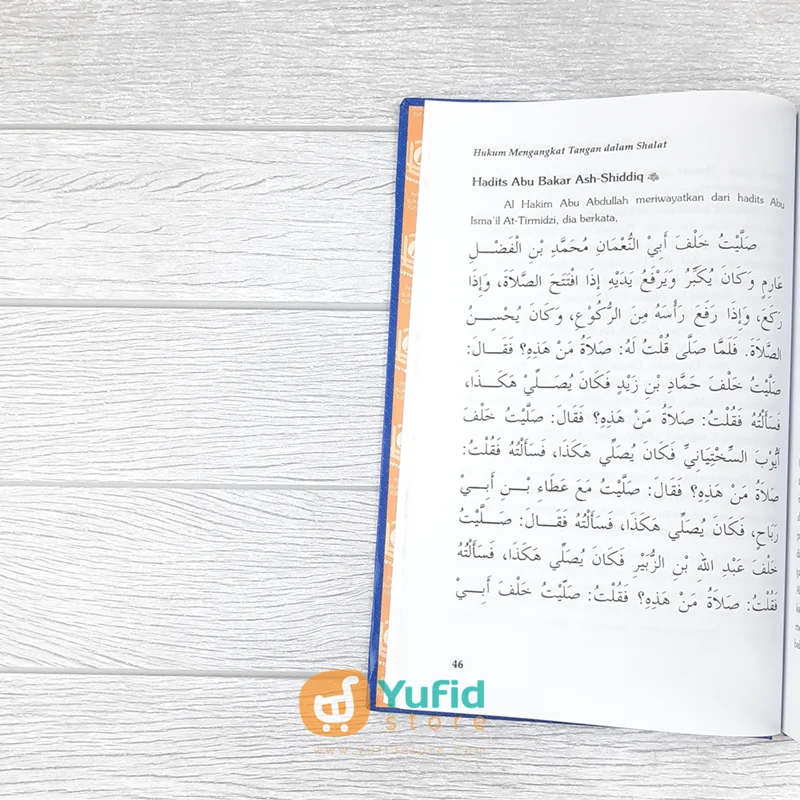 Hukum Mengangkat Tangan dalam Shalat
Hadits Abu Bakar Ash-Shiddiq
Al Hakim Abu Abdullah meriwayatkan dari hadits Abu
Isma'il At-Tirmidzi, dia berkata,
صَلَّيْتُ خَلْفَ أَبِيْ النُّعْمَانِ مُحَمَّدِ بْنِ الْفَضْـلِ
عَارِمٍ وَكَانَ يُكَبِّرُ وَيَرْفَعُ يَدَيْهِ إِذَا افْتَتَحَ الصَّلاَةَ، وَإِذَا
رَكَعَ، وَإِذَا رَفَعَ رَأْسَهُ مِنَ الرُّكُوْعِ، وَكَانَ يُحْسِـنُ
الصَّلاَةَ. فَلَمَّا صَلَّى قُلْتُ لَهُ: صَلاَةُ مَنْ هَذِهِ؟ فَقَـالَ:
صَلَّيْتُ خَلْفَ حَمَّادِ بْنِ زَيْدٍ فَكَانَ يُصَلِّيْ هَكَـذَا،
فَسَأَلْتُهُ فَقُلْتُ: صَلاَةُ مَنْ هَذِهِ؟ فَقَالَ: صَلَّيْتُ خَلْفَ
أَيُّوْبَ السِّخْتِيَانِيِّ فَكَانَ يُصَلِّي هَكَذَا، فَسَأَلْتُهُ فَقُلْتُ:
صَلاَةُ مَنْ هَذِهِ؟ فَقَالَ: صَلَّيْتُ مَعَ عَطَاءِ بْـنِ أَبِـيْ
رَبَاحٍ، فَكَانَ يُصَلِّي هَكَذَا، فَسَأَلْتُهُ فَقَـالَ: صَـلَّيْتُ
خَلْفَ عَبْدِ اللهِ بْنِ الزُّبَيْرِ فَكَانَ يُصَلِّيْ هَكَذَا، فَسَأَلْتُهُ
فَقُلْتُ: صَلاَةُ مَنْ هَذِهِ؟ فَقُلْتُ: صَلَّيْتُ خَلْفَ أَبِـيْ
46
Yufid
store